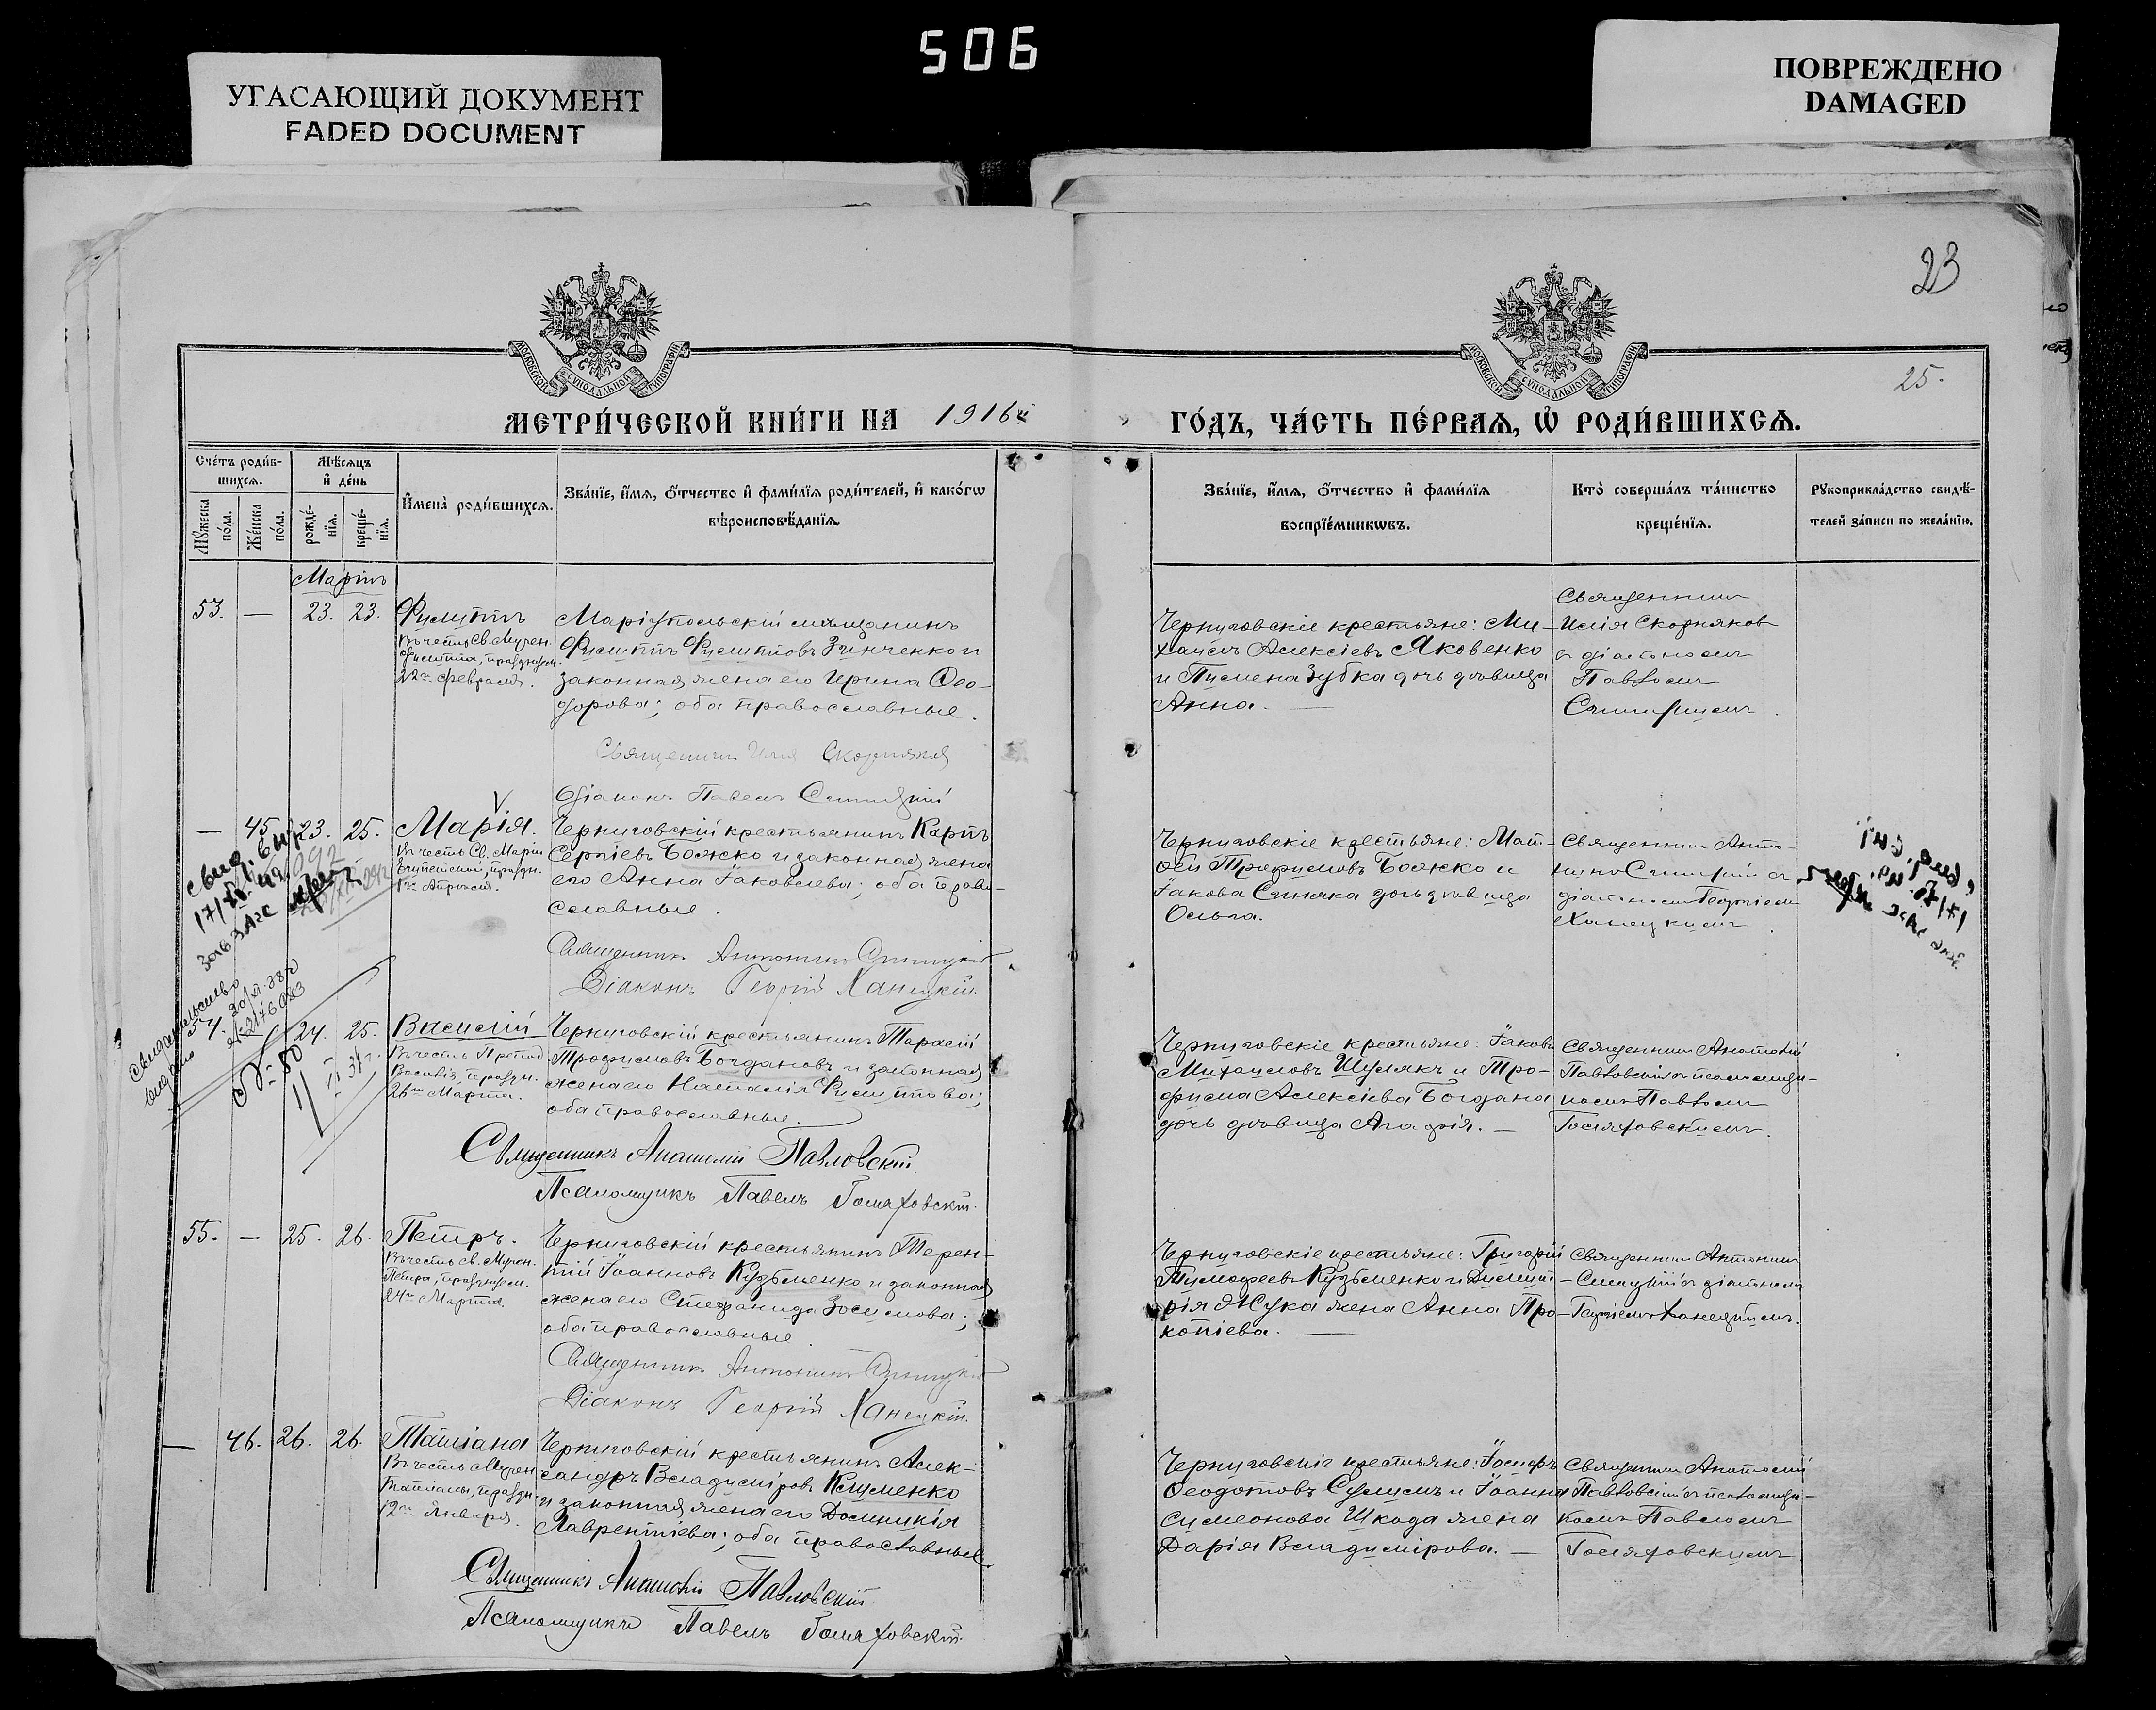 506
УГАСАЮЩИЙ ДОКУМЕНТ
FADED DOCUMENT
ПОВРЕЖДЕНО
DAMAGED
23
25.
МОСКОВСКОЙ СѴНОДАЛЬНОЙ ТИПОГРАФІИ
МОСКОВСКОЙ СѴНОДАЛЬНОЙ ТИПОГРАФІИ
МЕТРИ́ЧЕСКОЙ КНИ́ГИ НА 1916й
ГО́ДЪ, ЧА́СТЬ ПЕ́РВАѦ, Ѿ РОДИ́ВШИХСѦ.
Сче́тъ роди́в-
шихсѧ.
Мѣ́сѧцъ
и҆ де́нь
Мꙋ́жеска по́ла.
Же́нска по́ла.
рожде́-нїѧ.
креще́-нїѧ.
И҆мена̀ роди́вшихсѧ.
Зва́нїе, и҆́мѧ, ѻ҆́тчество и҆ фами́лїѧ роди́телей, и҆ како́гѡ
вѣроисповѣ́данїѧ.
Зва́нїе, и҆́мѧ, ѻ҆́тчество и҆ фами́лїѧ
воспрїе́мникѡвъ.
Кто̀ соверша́лъ та́инство
креще́нїѧ.
Рꙋкоприкла́дство свидѣ́-
телей за́писи по жела́нїю.
Мартъ
53. — 23. 23. Филиппъ
Въ честь Св. Мучен.
Филиппа, празднуем.
22го февраля.
Маріупольскій мѣщанинъ
Филиппъ Филипповъ Зинченко и
законная жена его Ирина Ѳео-
дорова; оба православные.
Священникъ Илія Скорняковъ
Діаконъ Павелъ Синицкій
Черниговскіе крестьяне: Ми-
хаилъ Алексіевъ Яковенко
и Пимена Зубка дочь дѣвица
Анна. —
Священникъ
Илія Скорняковъ
съ діакономъ
Павломъ
Синицкимъ.
— 45. 23. 25. Марія.
Въ честь Св. Маріи
Египетской, праздн.
1го Апрѣля.
Черниговскій крестьянинъ Карпъ
Сергіевъ Божко и законная жена
его Анна Іаковлева; оба право-
славные.
Священникъ Антонинъ Синицкій
Діаконъ Георгій Ханецкій.
Черниговскіе крестьяне: Мат-
ѳей Трифимовъ Божко и
Іакова Синяка дочь дѣвица
Ольга.
Священникъ Анто-
нинъ Синицкій съ
діакономъ Георгіемъ
Ханецкимъ.
54. — 24. 25. Василій
Въ честь Препод.
Василія, праздн.
26го Марта.
Черниговскій крестьянинъ Тарасій
Трофимовъ Богдановъ и законная
жена его Наталія Филиппова;
оба православные.
Священникъ Анатолій Павловскій
Псаломщикъ Павелъ Голяховскій.
Черниговскіе крестьяне: Іаковъ
Михаиловъ Шулякъ и Тро-
фима Алексіева Богдана
дочь дѣвица Агафія. —
Священникъ Анатолій
Павловскій съ псаломщи-
комъ Павломъ
Голяховскимъ.
Свидетельство
выдано
№ 80
55. — 25. 26. Петръ.
Въ честь св. Мучен.
Петра, празднуем.
24го Марта.
Черниговскій крестьянинъ Терен-
тій Іоанновъ Кузьменко и законная
жена его Стефанида Зосимова;
оба православные.
Священникъ Антонинъ Синицкій
Діаконъ Георгій Ханецкій.
Черниговскіе крестьяне: Григорій
Тимофеевъ Кузьменко и Димит-
рія Жука жена Анна Про-
копіева. —
Священникъ Антонинъ
Синицкій съ діакономъ
Георгіемъ Ханецкимъ.
— 46. 26. 26. Татіана
Въ честь Мучен.
Татіаны, праздн.
12го Января.
Черниговскій крестьянинъ Алек-
сандръ Владиміровъ Клименко
и законная жена его Домникія
Лаврентіева; оба православные
Священникъ Анатолій Павловскій
Псаломщикъ Павелъ Голяховскій.
Черниговскіе крестьяне: Іосифъ
Ѳеодотовъ Сулимъ и Іоанна
Симеонова Шкода жена
Дарія Владимірова. —
Священникъ Анатолій
Павловскій съ псаломщи-
комъ Павломъ
Голяховскимъ